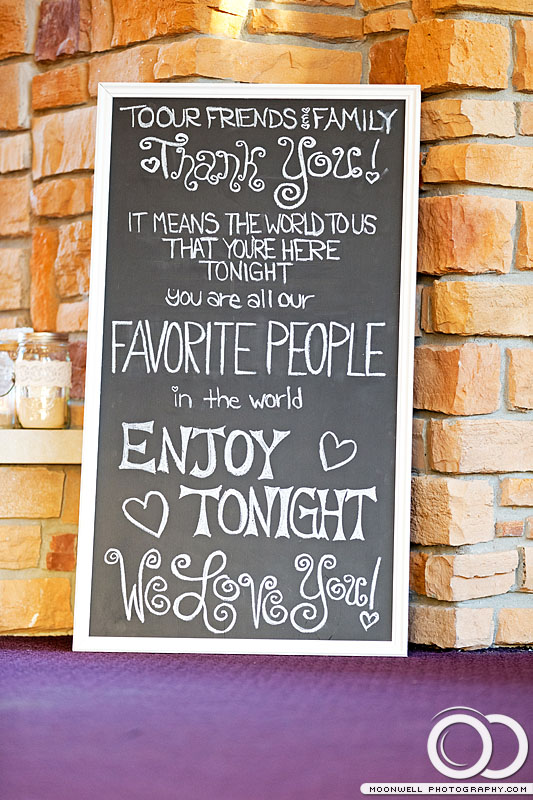 TO OUR FRIENDS and FAMILY
Thank You!
IT MEANS THE WORLD TO US
THAT YOU'RE HERE
TONIGHT
you are all our
FAVORITE PEOPLE
in the world
ENJOY
TONIGHT
We Love You!
MOONWELL PHOTOGRAPHY.COM